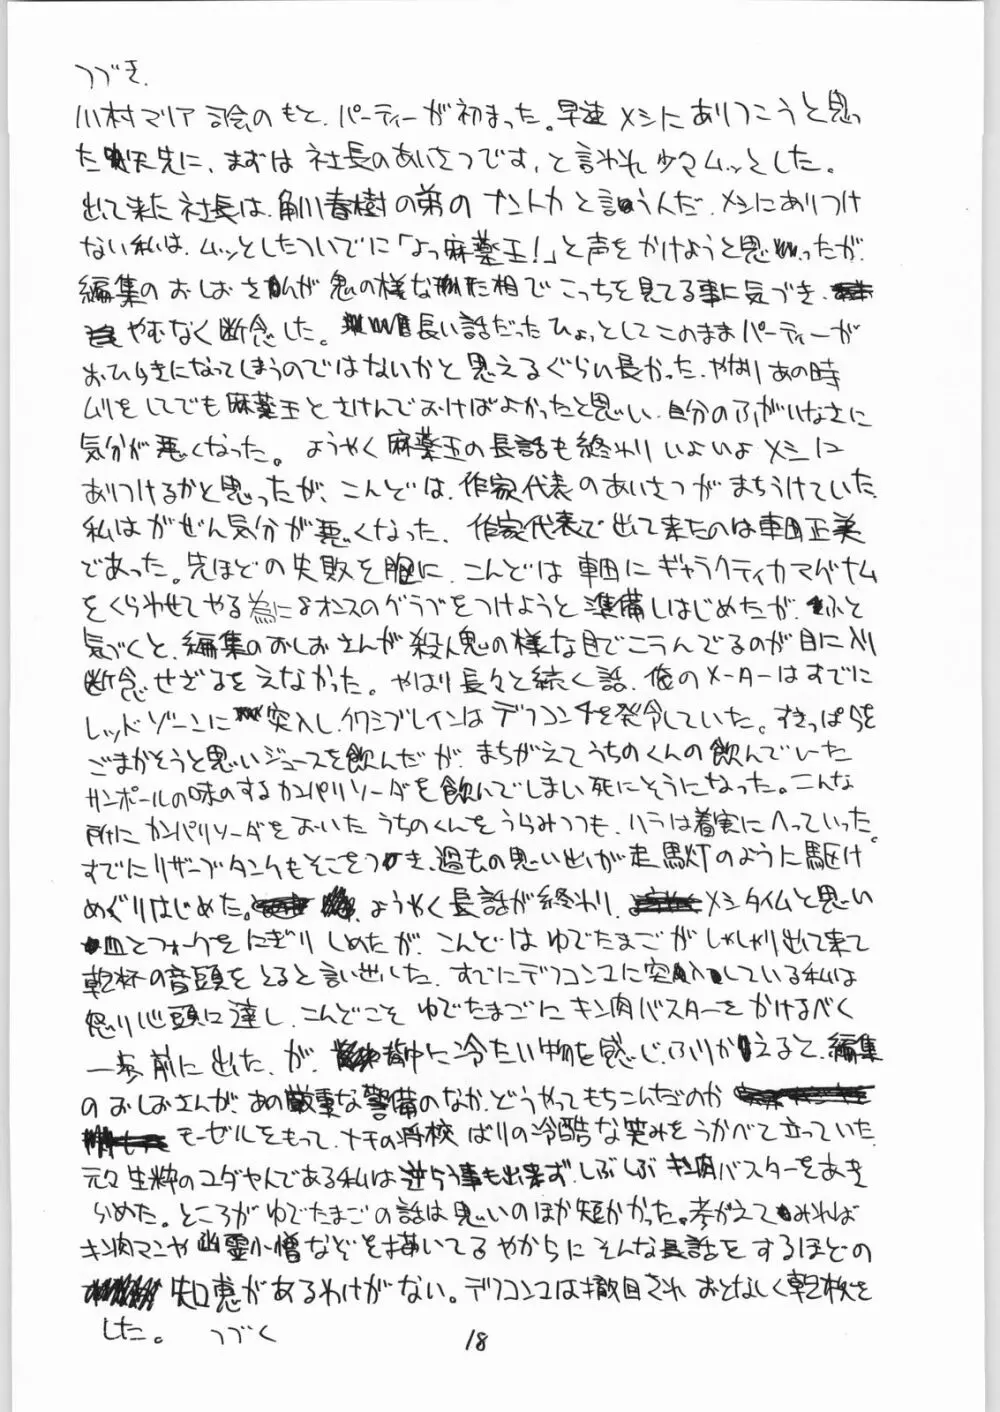 つづき.
川村マリア司会のもと、パーティーが初まった。早速メシにありつこうと思っ
た矢先に、まずは社長のあいさつです、と言われ少々ムッとした。
出て来た社長は、角川春樹の弟のナントカと言うんだ、メシにありつけ
ない私は、ムッとしたついでに「よっ麻薬王!」と声をかけようと思ったが、
編集のおしおさんが鬼の様な形相でこっちを見てる事に気づき、
やむなく断念した。長い話だったひょっとしてこのままパーティーが
おひらきになってしまうのではないかと思えるぐらい長かった、やはりあの時
ムリをしてでも麻薬王とさけんでおけばよかったと思い、自分のふがいなさに
気分が悪くなった。ようやく麻薬王の長話も終わりいよいよメシに
ありつけるかと思ったが、こんどは、作家代表のあいさつがまちうけていた、
私はがぜん気分が悪くなった、作家代表で出て来たのは車田正美
であった。先ほどの失敗を胸に、こんどは車田にギャラクティカマグナム
をくらわせてやる為に8オンスのグラブをつけようと準備しはじめたが、ふと
気づくと、編集のおしおさんが殺人鬼の様な目でこうんでるのが目に入り
断念せざるをえなかった。やはり長々と続く話、俺のメーターはすでに
レッドゾーンに突入し、クワシブレインはデフコン4を発令していた。すきっぱらを
ごまかそうと思いジュースを飲んだが、まちがえてうちのくんの飲んでいた
サンポールの味のするカンパリソーダを飲んでしまい死にそうになった。こんな
所にカンパリソーダをおいたうちのくんをうらみつつも、ハラは着実にへっていった。
すでにリザーブタンクもそこをつき、過去の思い出が走馬灯のように駆け
めぐりはじめた。ようやく長話が終わり、メシタイムと思い
皿とフォークをにぎりしめたが、こんどはゆでたまごがしゃしゃり出て来て
乾杯の音頭をとると言い出した、すでにデフコン2に突入している私は
怒り心頭に達し、こんどこそゆでたまごにキン肉バスターをかけるべく
一歩前に出た、が、背中に冷たい物を感じ、ふりかえると、編集
のおしおさんが、あの厳重な警備のなか、どうやってもちこんだのか
モーゼルをもって、ナチの将校ばりの冷酷な笑みをうかべて立っていた、
元々生粋のユダヤ人である私は逆らう事も出来ず、しぶしぶキン肉バスターをあき
らめた。ところがゆでたまごの話は思いのほか短かかった。考がえてみれば
キン肉マンや幽霊小僧などを描いてるやからにそんな長話をするほどの
知恵があるわけがない。デフコン2は撤回され、おとなしく乾杯を
した。 つづく
18